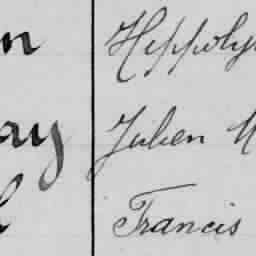 n Hippoly
ay Julien M
l Francis